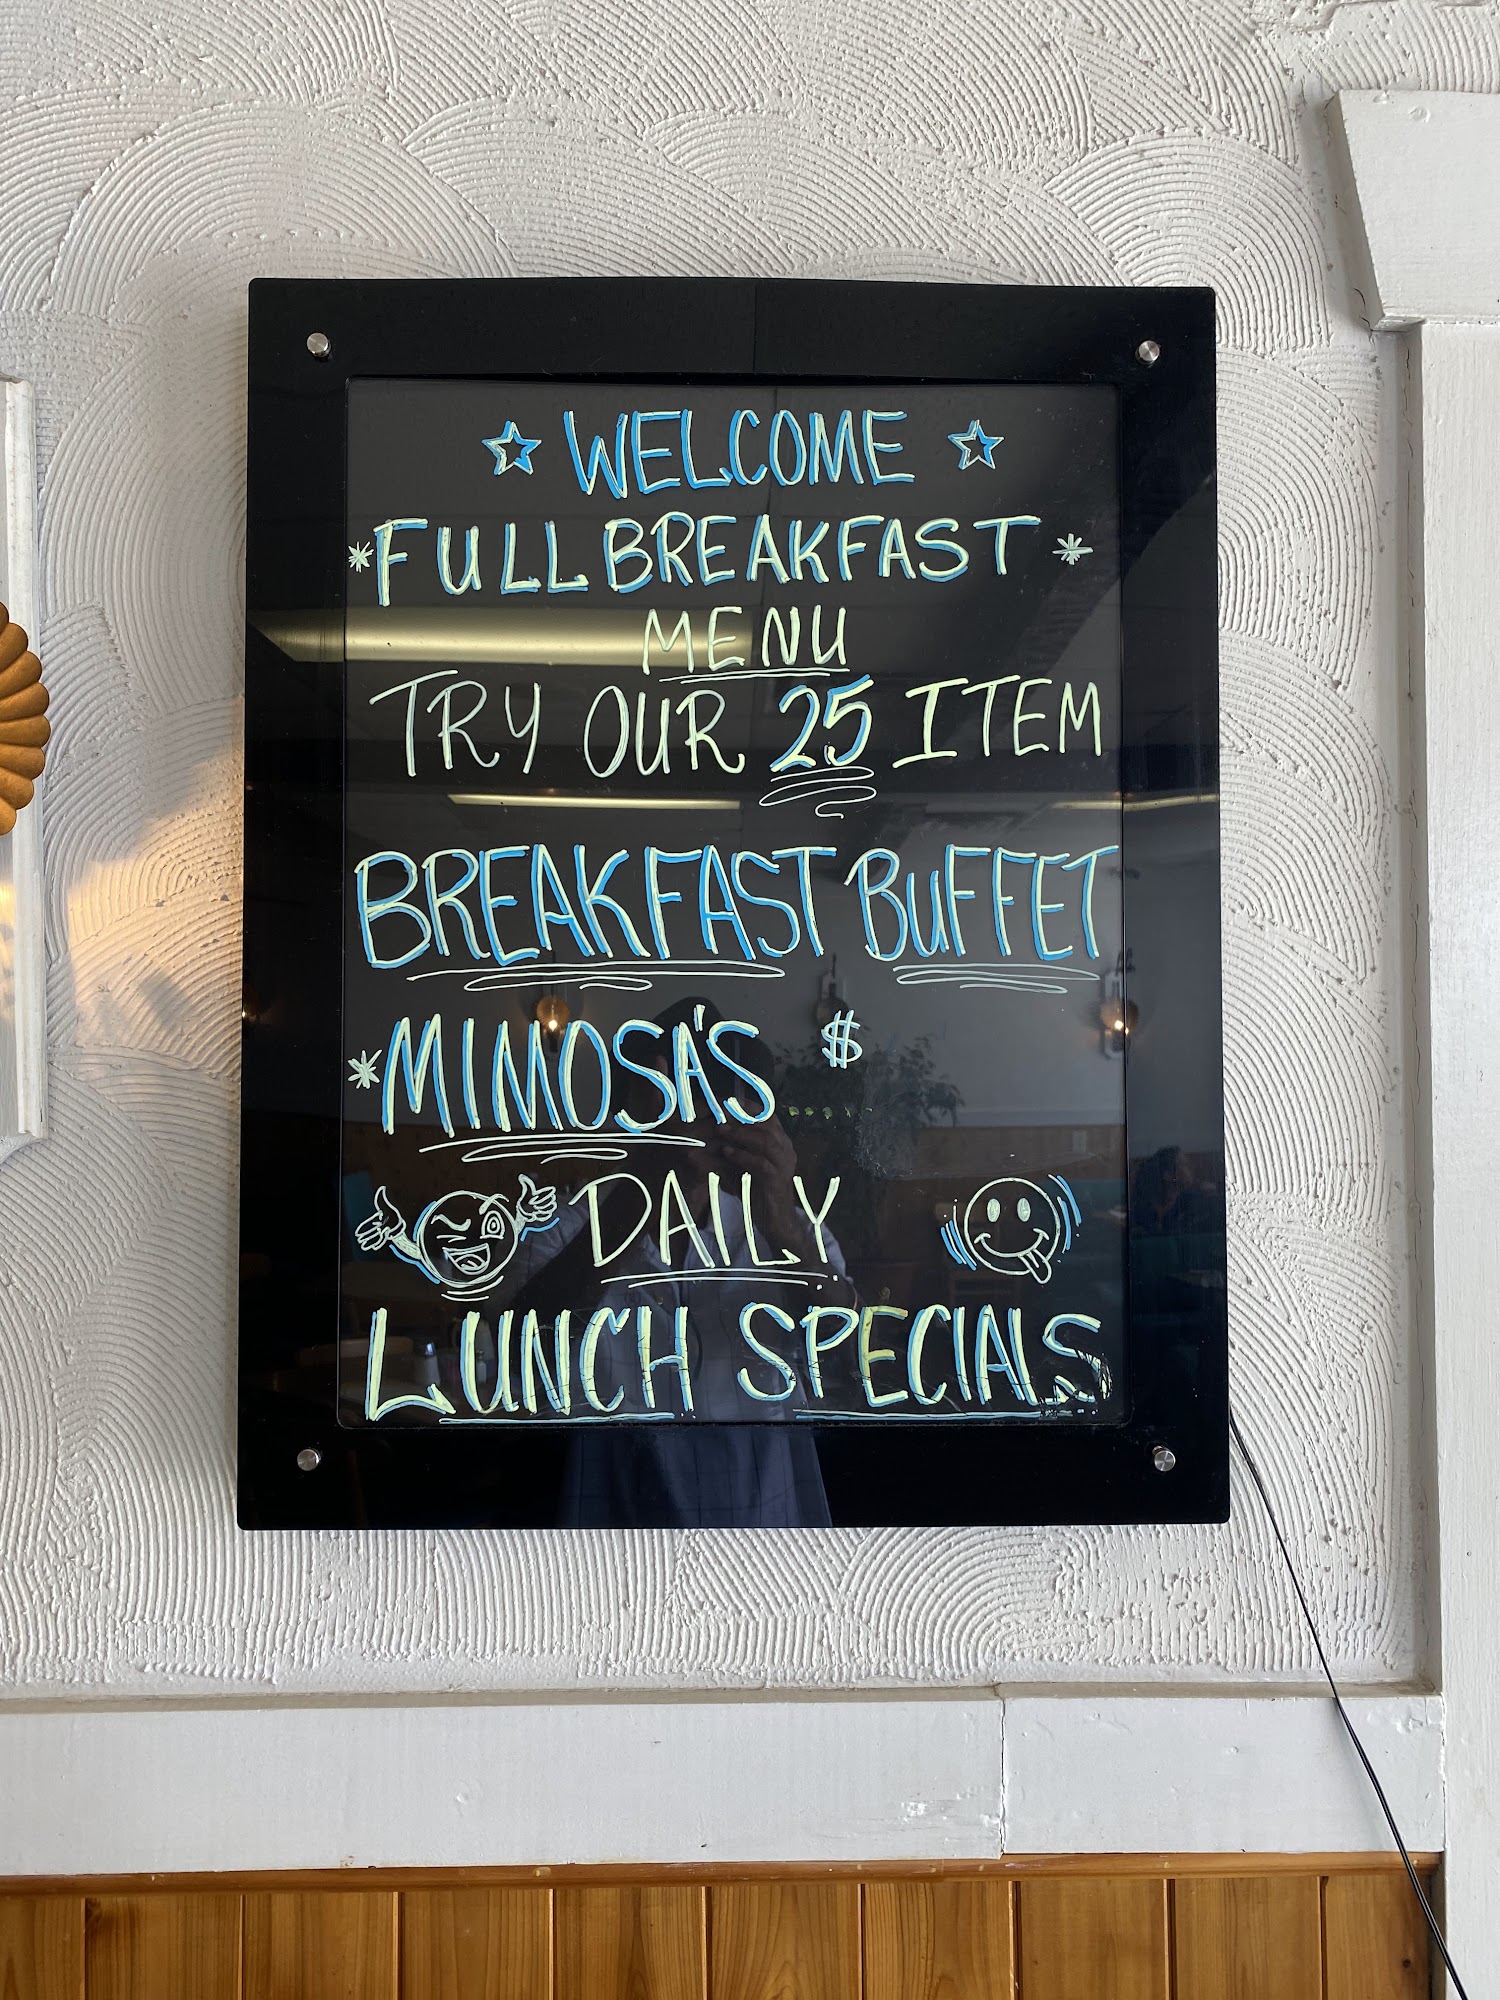 WELCOME
*FULL BREAKFAST*
MENU
TRY OUR 25 ITEM
BREAKFAST BUFFET
*MIMOSA'S.... $
DAILY
LUNCH SPECIALS